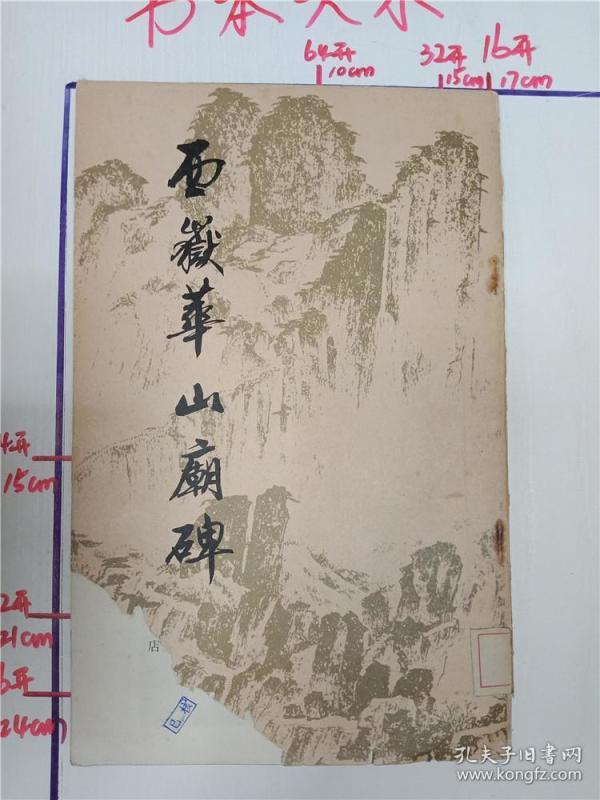 书本大小
64开
10cm
32开
15cm
16开
17cm
西嶽華山廟碑
15cm
21cm
24cm
店
孔夫子旧书网
www.kongfz.com